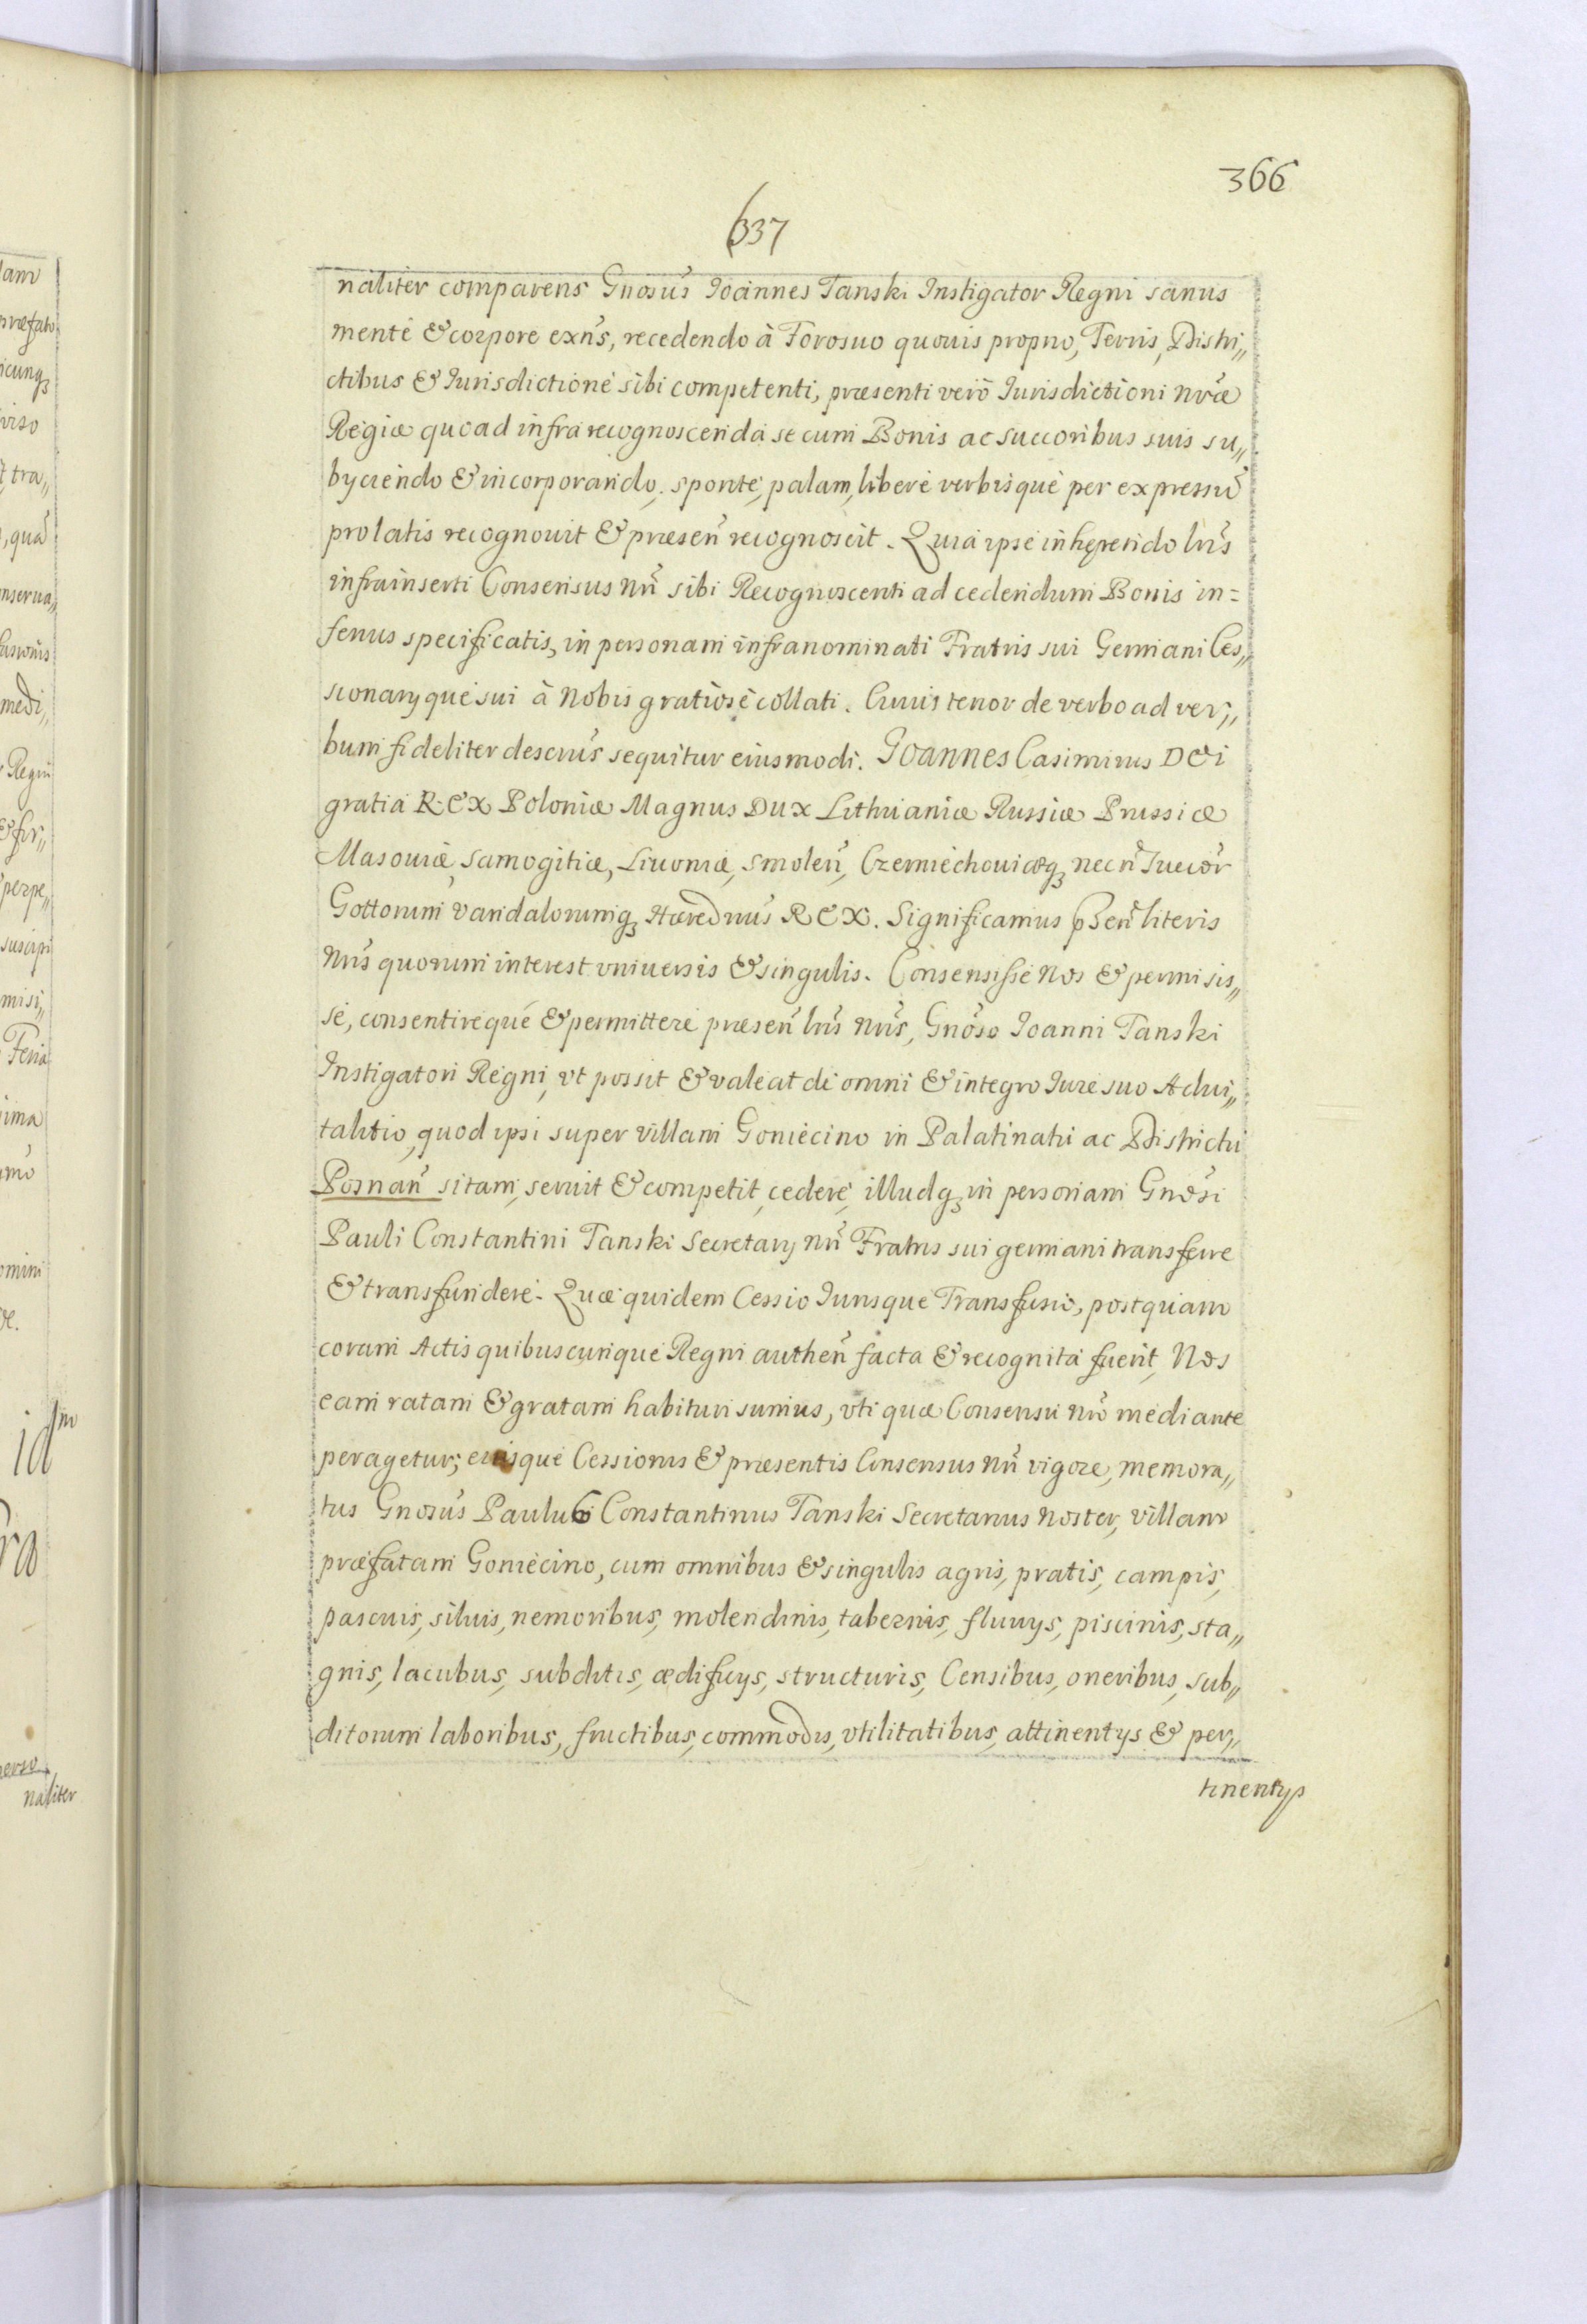 366
637
naliter comparens Gnosus Ioannes Tanski Instigator Regni sanus
mente & corpore exns, recedendo à Foro suo quouis proprio, Terris, Distri„
ctibus & Iurisdictione sibi competenti, præsenti verò Iurisdictioni nræ
Regiæ quoad infra recognoscenda se cum Bonis ac succoribus suis su„
byciendo & incorporando, sponte, palam, libere verbisque per expressũ
prolatis recognouit & præsen recognoscit. Quia ipse inhęrendo lris
infrainserti Consensus nri sibi Recognoscenti ad cedendum Bonis in=
ferius specificatis, in personam infranominati Fratris sui Germani Ces„
sionaryque sui à Nobis gratiose collati. Cuius tenor de verbo ad ver„
bum fideliter descrus sequitur eiusmodi. Joannes Casimirus Dei
gratia Rex Poloniæ Magnus Dux Lithuaniæ Russiæ Prussiæ
Masouiæ, Samogitiæ, Liuoniæ, Smolen, Czerniechouiæq, necn Suecor
Gottorum Vandalorumq, Hæredrius Rex. Significamus pñsen literis
nris quorum interest vniuersis & singulis. Consensisse Nos & permisis„
se, consentireque & permittere præsen lris nris, Gnoso Ioanni Tanski
Instigatori Regni, vt possit & valeat de omni & integro Iure suo Adui„
talitio, quod ipsi super villam Goniecino in Palatinatu ac Districtu
Posnan sitam, seruit & competit, cedere, illudq, in personam Gnosi
Pauli Constantini Tanski Secretary nri Fratris sui germani transferre
& transfundere. Quæ quidem Cessio Iurisque Transfusio, postquam
coram Actis quibuscunque Regni authen facta & recognita fuerit, Nos
eam ratam & gratam habituri sumus, vti quæ Consensu nro mediante
peragetur; euisque Cessionis & præsentis Consensus nri vigore, memora„
tus Gnosus Paulus Constantinus Tanski Secretarius noster, villam
præfatam Goniecino, cum omnibus & singulis agris, pratis, campis,
pascuis, siluis, nemoribus, molendinis, tabernis, fluuys, piscinis, sta„
gnis, lacubus, subditis, ædificys, structuris, Censibus, oneribus, sub„
ditorum laboribus, fructibus, commodis, vtilitatibus, attinentys & per„
tinentys